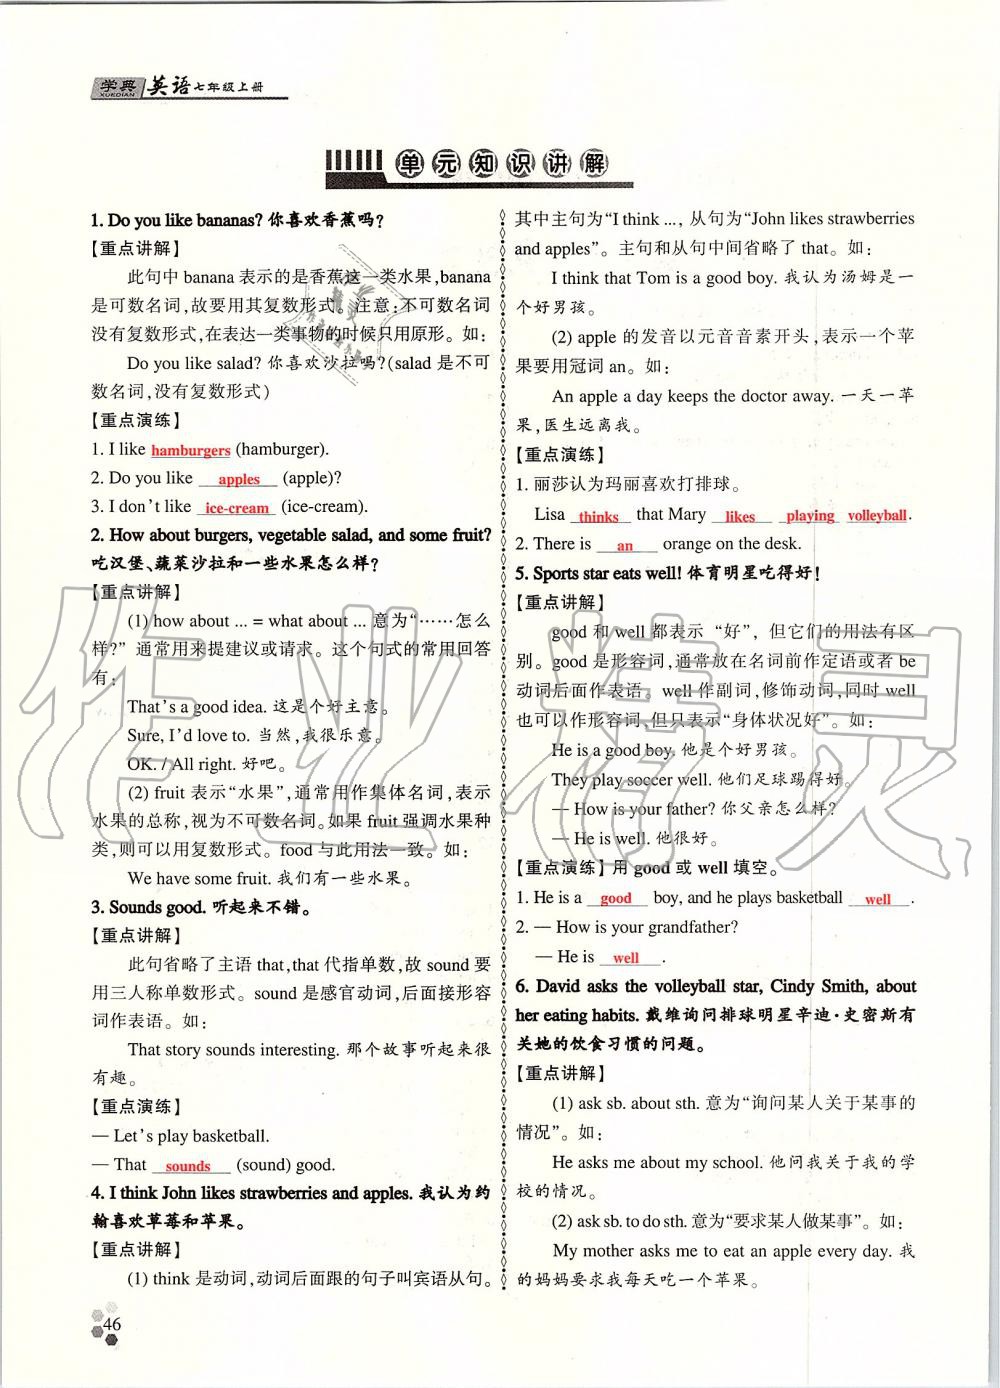 学典 英语七年级上册
XUEDIAN
单元知识讲解
1. Do you like bananas? 你喜欢香蕉吗?
【重点讲解】
此句中 banana 表示的是香蕉这一类水果,banana
是可数名词,故要用其复数形式。注意:不可数名词
没有复数形式,在表达一类事物的时候只用原形。如:
Do you like salad? 你喜欢沙拉吗?(salad 是不可
数名词,没有复数形式)
【重点演练】
1. I like hamburgers (hamburger).
2. Do you like apples (apple)?
3. I don't like ice-cream (ice-cream).
2. How about burgers, vegetable salad, and some fruit?
吃汉堡、蔬菜沙拉和一些水果怎么样?
【重点讲解】
(1) how about ... = what about ... 意为“……怎么
样?” 通常用来提建议或请求。这个句式的常用回答
有:
That's a good idea. 这是个好主意。
Sure, I'd love to. 当然,我很乐意。
OK. / All right. 好吧。
(2) fruit 表示“水果”,通常用作集体名词,表示
水果的总称,视为不可数名词。如果 fruit 强调水果种
类,则可以用复数形式。food 与此用法一致。如:
We have some fruit. 我们有一些水果。
3. Sounds good. 听起来不错。
【重点讲解】
此句省略了主语 that,that 代指单数,故 sound 要
用三人称单数形式。sound 是感官动词,后面接形容
词作表语。如:
That story sounds interesting. 那个故事听起来很
有趣。
【重点演练】
— Let's play basketball.
— That sounds (sound) good.
4. I think John likes strawberries and apples. 我认为约
翰喜欢草莓和苹果。
【重点讲解】
(1) think 是动词,动词后面跟的句子叫宾语从句。
其中主句为“I think ..., 从句为“John likes strawberries
and apples”。主句和从句中间省略了 that。如:
I think that Tom is a good boy. 我认为汤姆是一
个好男孩。
(2) apple 的发音以元音音素开头,表示一个苹
果要用冠词 an。如:
An apple a day keeps the doctor away. 一天一苹
果,医生远离我。
【重点演练】
1. 丽莎认为玛丽喜欢打排球。
Lisa thinks that Mary likes playing volleyball.
2. There is an orange on the desk.
5. Sports star eats well! 体育明星吃得好!
【重点讲解】
good 和 well 都表示“好”,但它们的用法有区
别。good 是形容词,通常放在名词前作定语或者 be
动词后面作表语。well 作副词,修饰动词,同时 well
也可以作形容词,但只表示“身体状况好”。如:
He is a good boy. 他是个好男孩。
They play soccer well. 他们足球踢得好。
— How is your father? 你父亲怎么样?
— He is well. 他很好。
【重点演练】用 good 或 well 填空。
1. He is a good boy, and he plays basketball well.
2. — How is your grandfather?
— He is well.
6. David asks the volleyball star, Cindy Smith, about
her eating habits. 戴维询问排球明星辛迪·史密斯有
关她的饮食习惯的问题。
【重点讲解】
(1) ask sb. about sth. 意为“询问某人关于某事的
情况”。如:
He asks me about my school. 他问我关于我的学
校的情况。
(2) ask sb. to do sth. 意为“要求某人做某事”。如:
My mother asks me to eat an apple every day. 我
的妈妈要求我每天吃一个苹果。
46
作业精灵